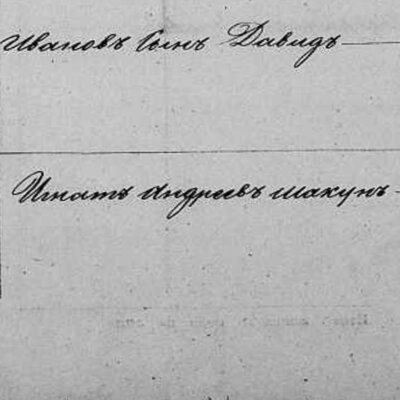 Ивановъ Сынъ Давидъ
Игнатъ Андреевъ Шакунъ